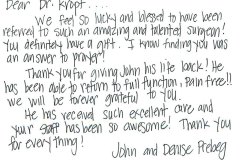 Dear Dr. Kropf....
We feel so lucky and blessed to have been
referred to such an amazing and talented surgeon!
You definitely have a gift. I know finding you was
an answer to prayer!
Thank you for giving John his life back! He
has been able to return to full function, pain free!!
We will be forever grateful to you.
He has received such excellent care and
your staff has been so awesome! Thank you
for everything!
John and Denise Preberg